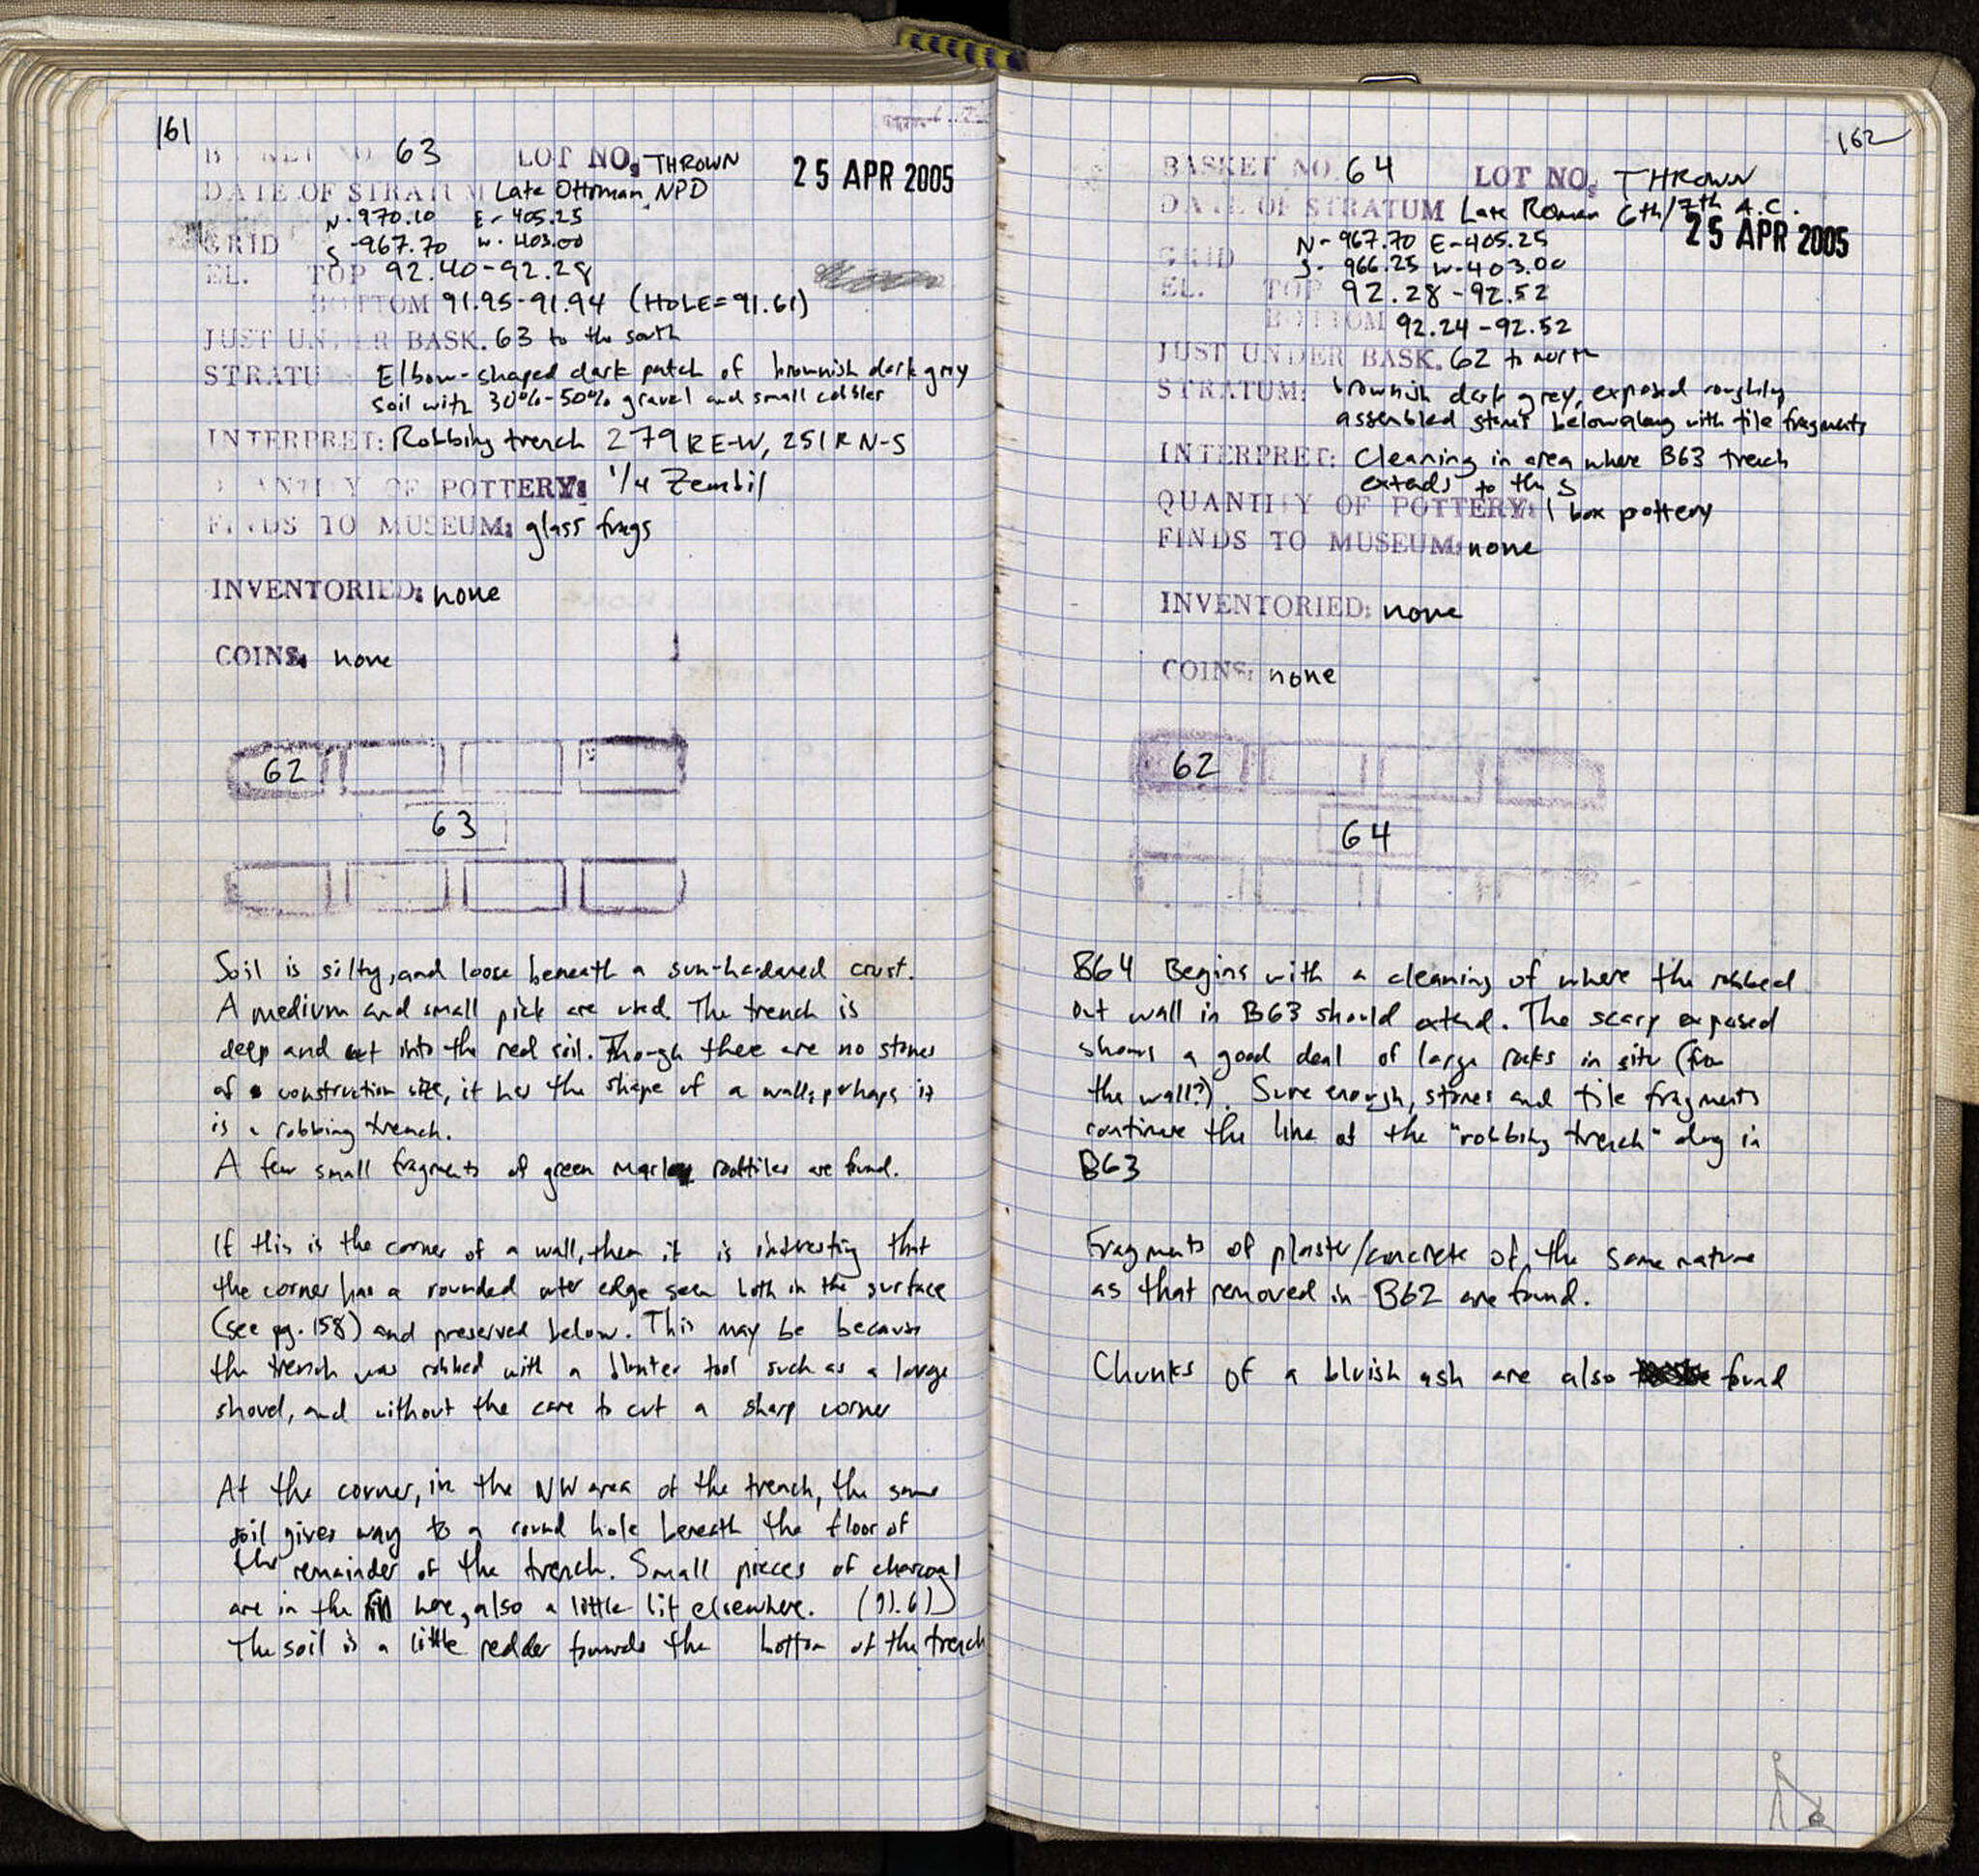 161
BASKET NO 63 LOT NO: THROWN
25 APR 2005
DATE OF STRATUM Late Ottoman, NPD
N-970.10 E-405.25
GRID S-967.70 W-403.00
EL. TOP 92.40-92.28
BOTTOM 91.95-91.94 (HOLE=91.61)
JUST UNDER BASK. 63 to the south
STRATU Elbow-shaped dark patch of brownish dark grey
soil with 30%-50% gravel and small cobbles
INTERPRET: Robbing trench 279R E-W, 251R N-S
QUANTITY OF POTTERY: 1/4 Zembil
FINDS TO MUSEUM: glass frags
INVENTORIED: none
COINS: none
62
63
Soil is silty, and loose beneath a sun-hardened crust.
A medium and small pick are used. The trench is
deep and cut into the red soil. Though there are no stones
of construction size, it has the shape of a wall; perhaps it
is a robbing trench.
A few small fragments of green marley rooftiles are found.
If this is the corner of a wall, then it is interesting that
the corner has a rounded outer edge seen both in the surface
(see pg. 158) and preserved below. This may be because
the trench was robbed with a blunter tool such as a large
shovel, and without the care to cut a sharp corner
At the corner, in the NW area of the trench, the same
soil gives way to a round hole beneath the floor of
the remainder of the trench. Small pieces of charcoal
are in the fill here, also a little bit elsewhere. (91.61)
The soil is a little redder towards the bottom of the trench
162
BASKET NO. 64 LOT NO: THROWN
DATE OF STRATUM Late Roman 6th/7th A.C.
25 APR 2005
N-967.70 E-405.25
GRID S-966.25 W-403.00
EL. TOP 92.28-92.52
BOTTOM 92.24-92.52
JUST UNDER BASK. 62 to north
STRATUM: brownish dark grey, exposed roughly
assembled stones below along with tile fragments
INTERPRET: Cleaning in area where B63 trench
extends to the S
QUANTITY OF POTTERY: 1 box pottery
FINDS TO MUSEUM: none
INVENTORIED: none
COINS: none
62
64
B64 Begins with a cleaning of where the robbed
out wall in B63 should extend. The scarp exposed
shows a good deal of large rocks in situ (from
the wall?). Sure enough, stones and tile fragments
continue the line of the "robbing trench" dug in
B63
Fragments of plaster/concrete of the same nature
as that removed in B62 are found.
Chunks of a bluish ash are also found